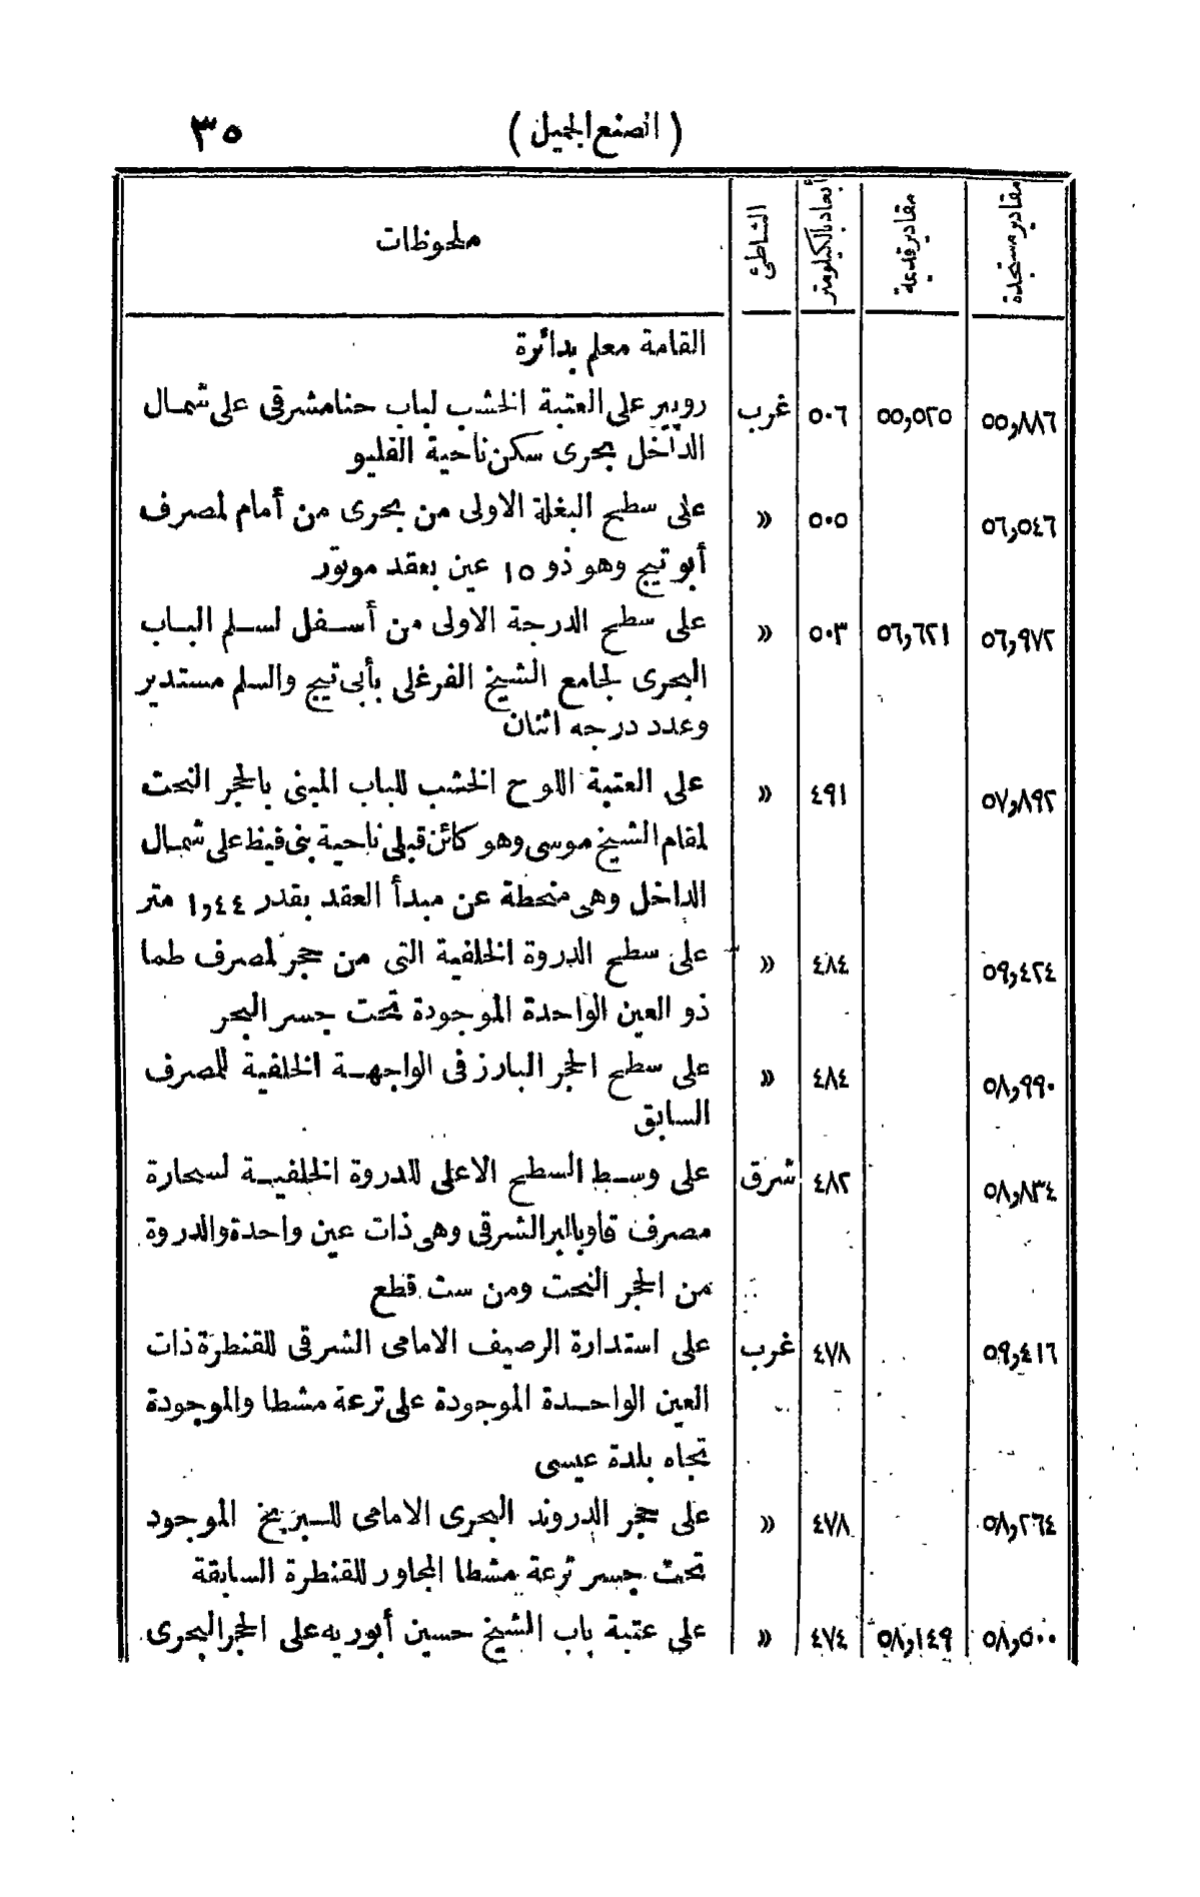 ٣٥ (الصنع الجميل)
مقادير مستجدة مقادير قديمة أبعاد بالكيلومتر الشاطئ ملحوظات
القامة معلم بدائرة
٥٥,٨٨٦ ٥٥,٥٢٥ ٥٠٦ غرب روبير على العتبة الخشب لباب حنا مشرقى على شمال
الداخل بحرى سكن ناحية القليو
٥٦,٥٤٦ ٥٠٥ » على سطح البغلة الاولى من بحرى من أمام لمصرف
أبو تيج وهو ذو ١٥ عين بعقد موتور
٥٦,٩٧٢ ٥٦,٦٢١ ٥٠٣ » على سطح الدرجة الاولى من أسفل لسلم الباب
البحرى لجامع الشيخ الفرغلى بأبى تيج والسلم مستدير
وعدد درجه اثنان
٥٧,٨٩٢ ٤٩١ » على العتبة اللوح الخشب للباب المبنى بالحجر النحت
لمقام الشيخ موسى وهو كائن قبلى ناحية بنى فيظ على شمال
الداخل وهى منحطة عن مبدأ العقد بقدر ١,٤٤ متر
٥٩,٤٢٤ ٤٨٤ » على سطح الدروة الخلفية التى من حجر لمصرف طما
ذو العين الواحدة الموجودة تحت جسر البحر
٥٨,٩٩٠ ٤٨٤ » على سطح الحجر البارز فى الواجهة الخلفية للمصرف
السابق
٥٨,٨٣٤ ٤٨٢ شرق على وسط السطح الاعلى للدروة الخلفية لسحارة
مصرف قاو بالبر الشرقى وهى ذات عين واحدة والدروة
من الحجر النحت ومن ست قطع
٥٩,٤١٦ ٤٧٨ غرب على استدارة الرصيف الامامى الشرقى للقنطرة ذات
العين الواحدة الموجودة على ترعة مشطا والموجودة
تجاه بلدة عيسى
٥٨,٢٦٤ ٤٧٨ » على حجر الدروند البحرى الامامى للسبريخ الموجود
تحت جسر ترعة مشطا المجاور للقنطرة السابقة
٥٨,٥٠٠ ٥٨,١٤٩ ٤٧٤ » على عتبة باب الشيخ حسين أبوريه على الحجر البحرى